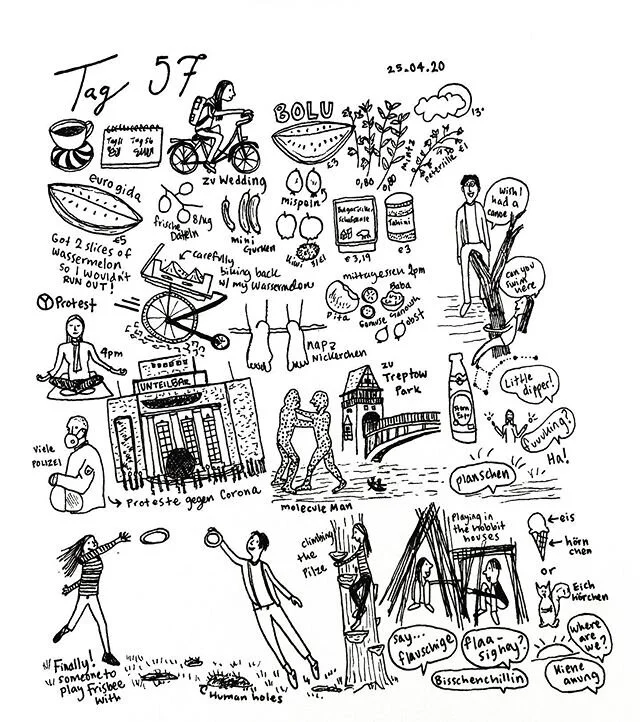 Tag 57
25.04.20
Tag 51
Tag 56
zu Wedding
BOLU
€3
0,80
0,80
Minze
Petersilie €1
13°
euro gida
€5
Got 2 slices of
wassermelon
so I wouldn't
RUN OUT!
frische
Datteln
8/kg
mini
Gurken
Mispeln
Kiwi
Bulgarische
Schafskäse
€3,19
Tahini
€3
Wish I
had a
canoe
can you
swim
here
carefully
biking back
w/ my wassermelon
mittagessen 2pm
Pita
Baba
Ganoush
Gemüse
obst
Protest
4pm
UNTEILBAR
nap z
Nickerchen
zu
Treptow
Park
Little
dipper!
fuuulking?
Ha!
planschen
Viele
POLIZEI
Proteste gegen Corona
molecule Man
Finally!
someone to
play Frisbee
with
Human holes
climbing
the
Pilze
Playing in
the Hobbit
houses
eis
hörn
chen
or
Eich
hörchen
say...
flauschige
flaa-
sighay?
Bisschenchillin
where
are
we?
Kiene
anung